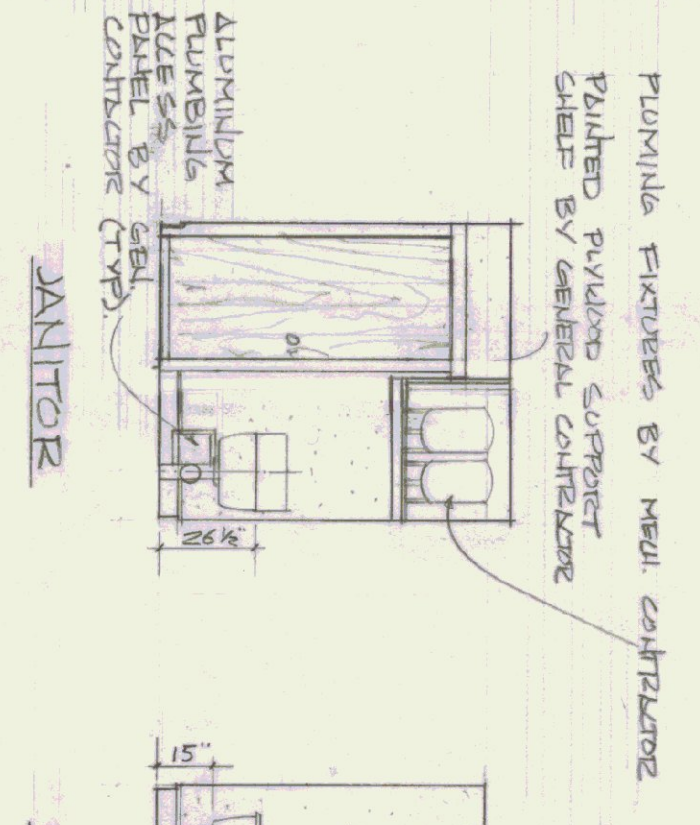 PLUMING FIXTURES BY MECH. CONTRACTOR
PAINTED PLYWOOD SUPPORT
SHELF BY GENERAL CONTRACTOR
ALUMINIUM
PLUMBING
ACCESS
PANEL BY GEN.
CONTACTOR (TYP)
26 ½"
15"
JANITOR